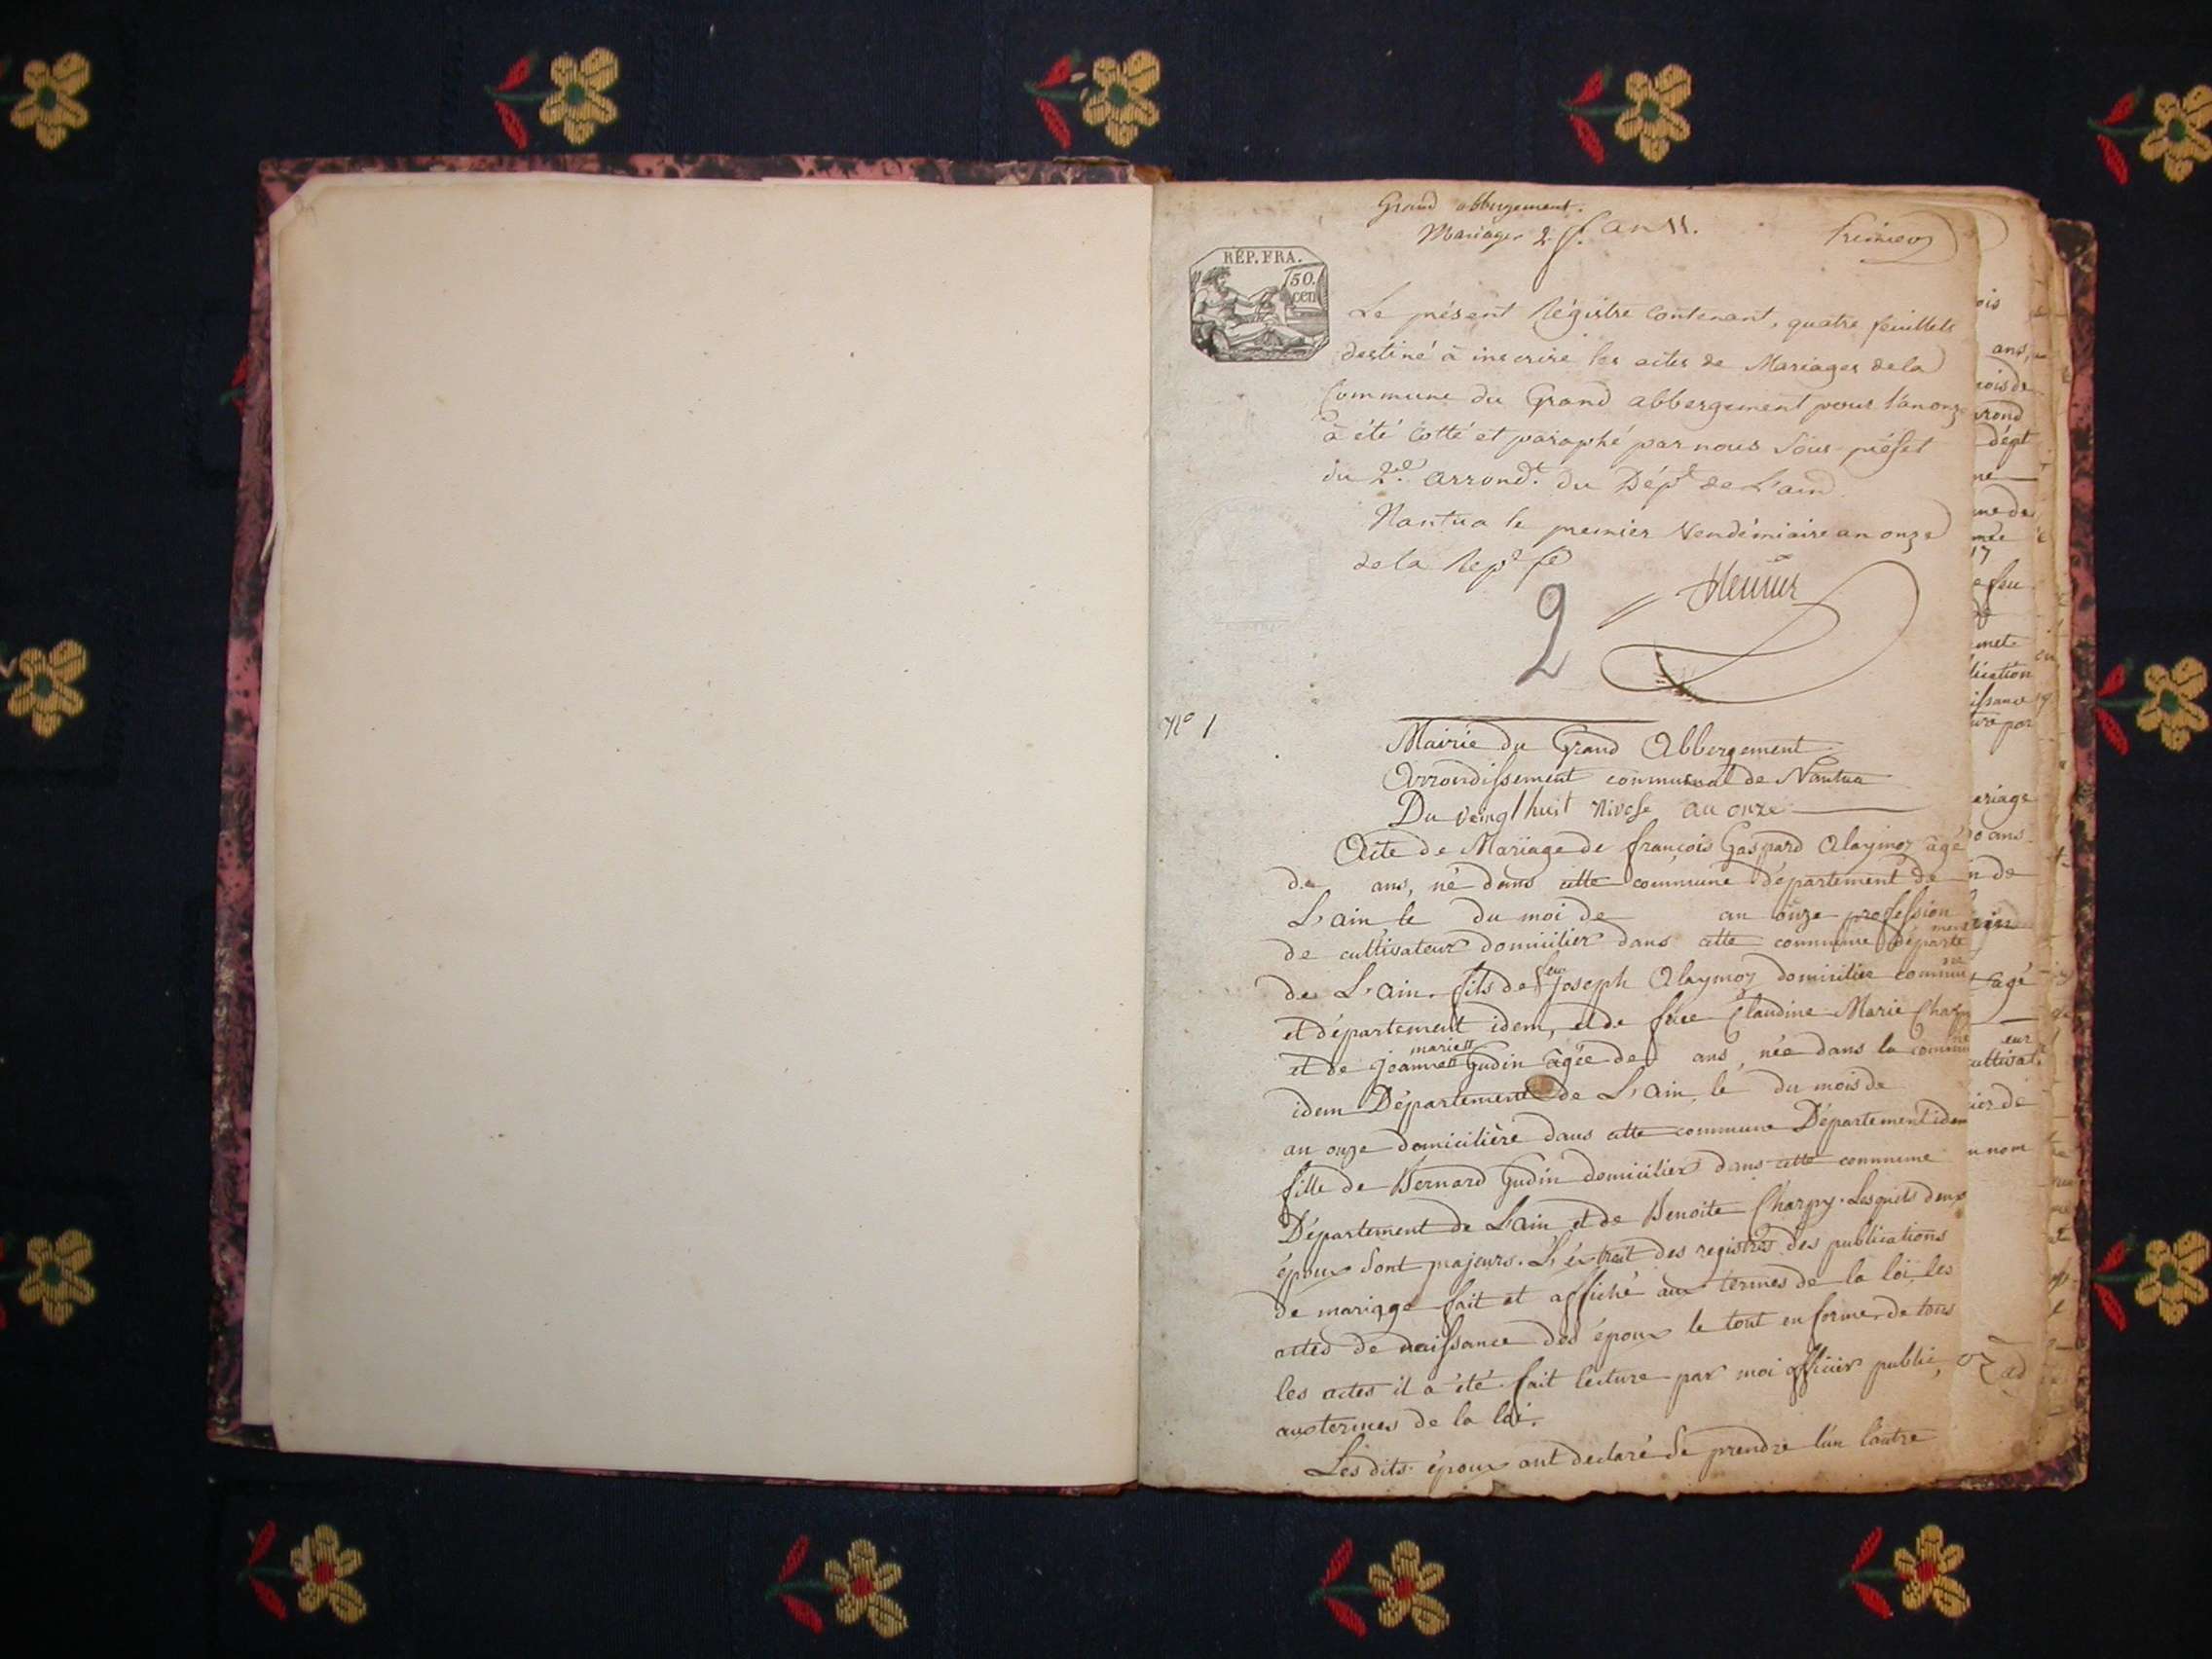 Grand abbergement.
Mariages 2. f. an 11.
premier
RÉP. FRA.
50.
cen
Le présent Régistre contenant, quatre feuillets
destiné à inscrire les actes de Mariages de la
Commune du Grand abbergement pour l'an onze
à été Cotté et paraphé par nous Sous-préfet
du 2e. arrondt. du Dépt de L'ain
Nantua le premier Vendémiaire an onze
de la Repe fe
2
No 1
Mairie du Grand Abbergement
Arrondissement communal de Nantua
Du veingt huit Nivose an onze
Acte de Mariage de françois Gaspard Alaymoz âgé
de ans, né dans cette commune département de
L'ain le du moi de an onze profession
de cultivateur domicilier dans cette commune département
de L'ain. fils de feu joseph Alaymoz domicilier commune
et département idem, et de feue Claudine Marie Charpy
et de jeanne mariett Gudin âgée de ans, née dans la commune
idem Département de L'ain, le du mois de
an onze domicilière dans cette commune Département idem
fille de Bernard Gudin domicilier dans cette commune
Département de L'ain et de Benoite Charpy. Lesquels deux
époux sont majeurs. L'éxtrait des registres des publications
de mariage fait et affiché aux termes de la loi, les
actes de naissance des époux le tout en forme, de tous
les actes il a été fait lecture par moi officier public,
aux termes de la loi.
Les dits époux ont declaré se prendre l'un l'autre
ois
ans,
rois de
rond
dépt
ne
me de
mée
17
feu
met
lication
issance
ture par
ariage
0 ans
n de
agé
eur
cultivat
ier de
u nom